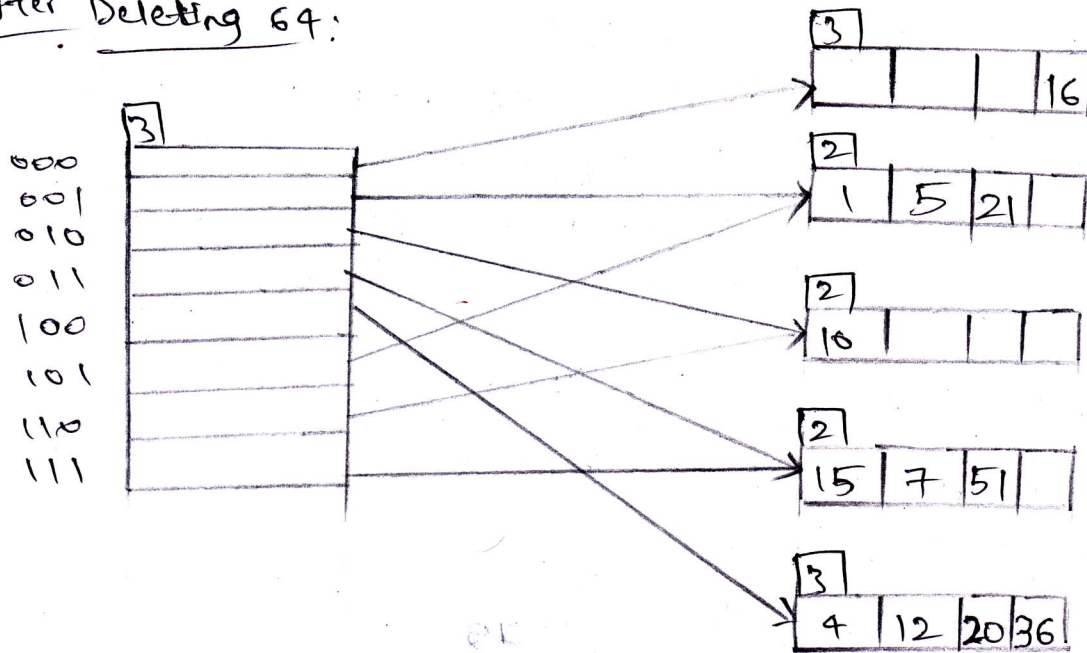 After Deleting 64:
3
000
001
010
011
100
101
110
111
3
16
2
1 5 21
2
10
2
15 7 51
3
4 12 20 36